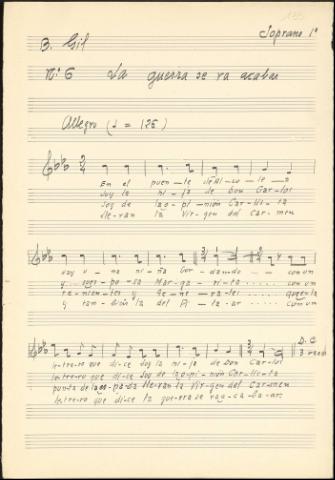 Soprano 1º
B. Gil
Nº 6 La guerra se va acabar
Allegro (♩ = 126)
En el puen-te de Al-co-le-a
Soy la hi-ja de Don Car-los
Soy de la o-pi-nión Car-lis-ta
lle-van la Vir-gen del Car-men
hay u-na ni-ña bor-dan-do con un
y espo-sa Mar-ga-ri-ta con un
y Ge-ne-ra-les
y tam-bién la del Pi-lar con un
le-tre-ro que di-ce Soy la hi-ja de Don Car-los
le-tre-ro que di-ce Soy de la o-pi-nión Car-lis-ta
pun-ta de la es-pa-da lle-van la Vir-gen del Car-men
le-tre-ro que di-ce la gue-rra se va a-ca-bar
D. C.
3 veces